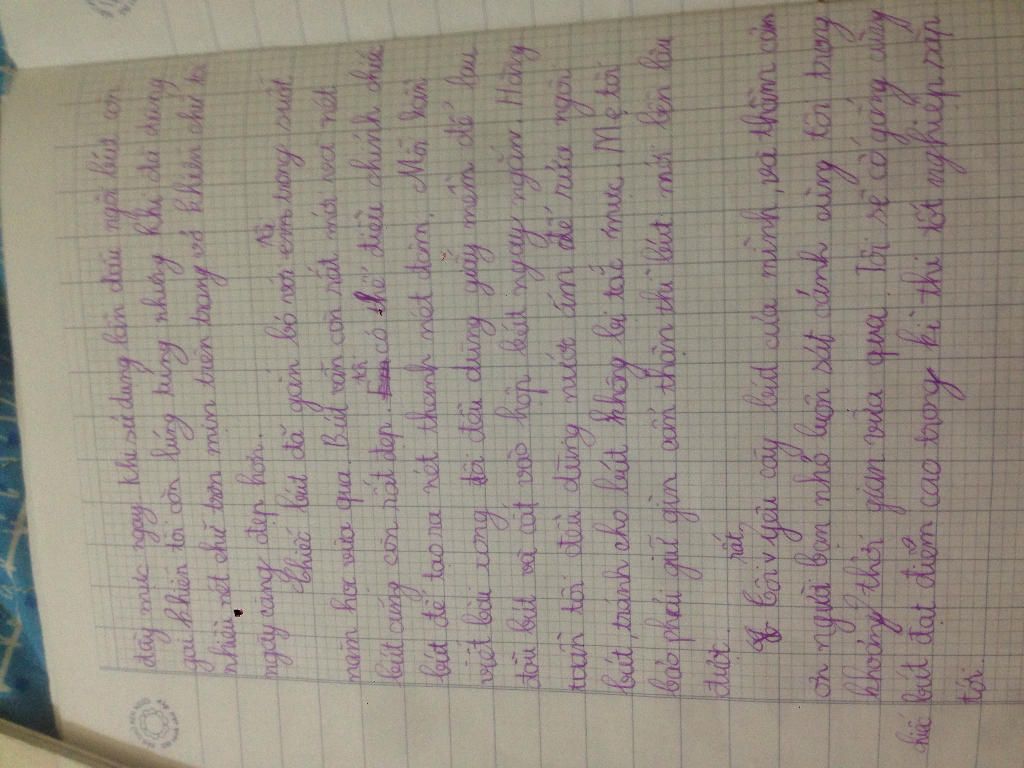 đầy mực ngay khi sử dụng. Lần đầu ngòi bút còn
gai khiến tôi còn lúng túng nhưng khi đã dùng
nhiều nét chữ trơn mịn trên trang vở khiến chữ tôi
ngày càng đẹp hơn.
Chiếc bút đã gắn bó với tôi trong suốt
năm học vừa qua. Bút vẫn còn rất mới và nét
bút cũng còn rất đẹp. tôi có thể điều chỉnh chiếc
bút để tạo ra nét thanh nét đậm. Mỗi lần
viết bài xong tôi đều dùng giấy mềm để lau
đầu bút và cất vào hộp bút ngay ngắn. Hàng
tuần tôi đều dùng nước ấm để rửa ngòi
bút, tránh cho bút không bị tắc mực. Mẹ tôi
bảo phải giữ gìn cẩn thận thì bút mới bền lâu
được.
Tôi rất yêu cây bút của mình, và thầm cảm
ơn người bạn nhỏ luôn sát cánh cùng tôi trong
khoảng thời gian vừa qua. Tôi sẽ cố gắng cùng
chiếc bút đạt điểm cao trong kì thi tốt nghiệp sắp
tới.